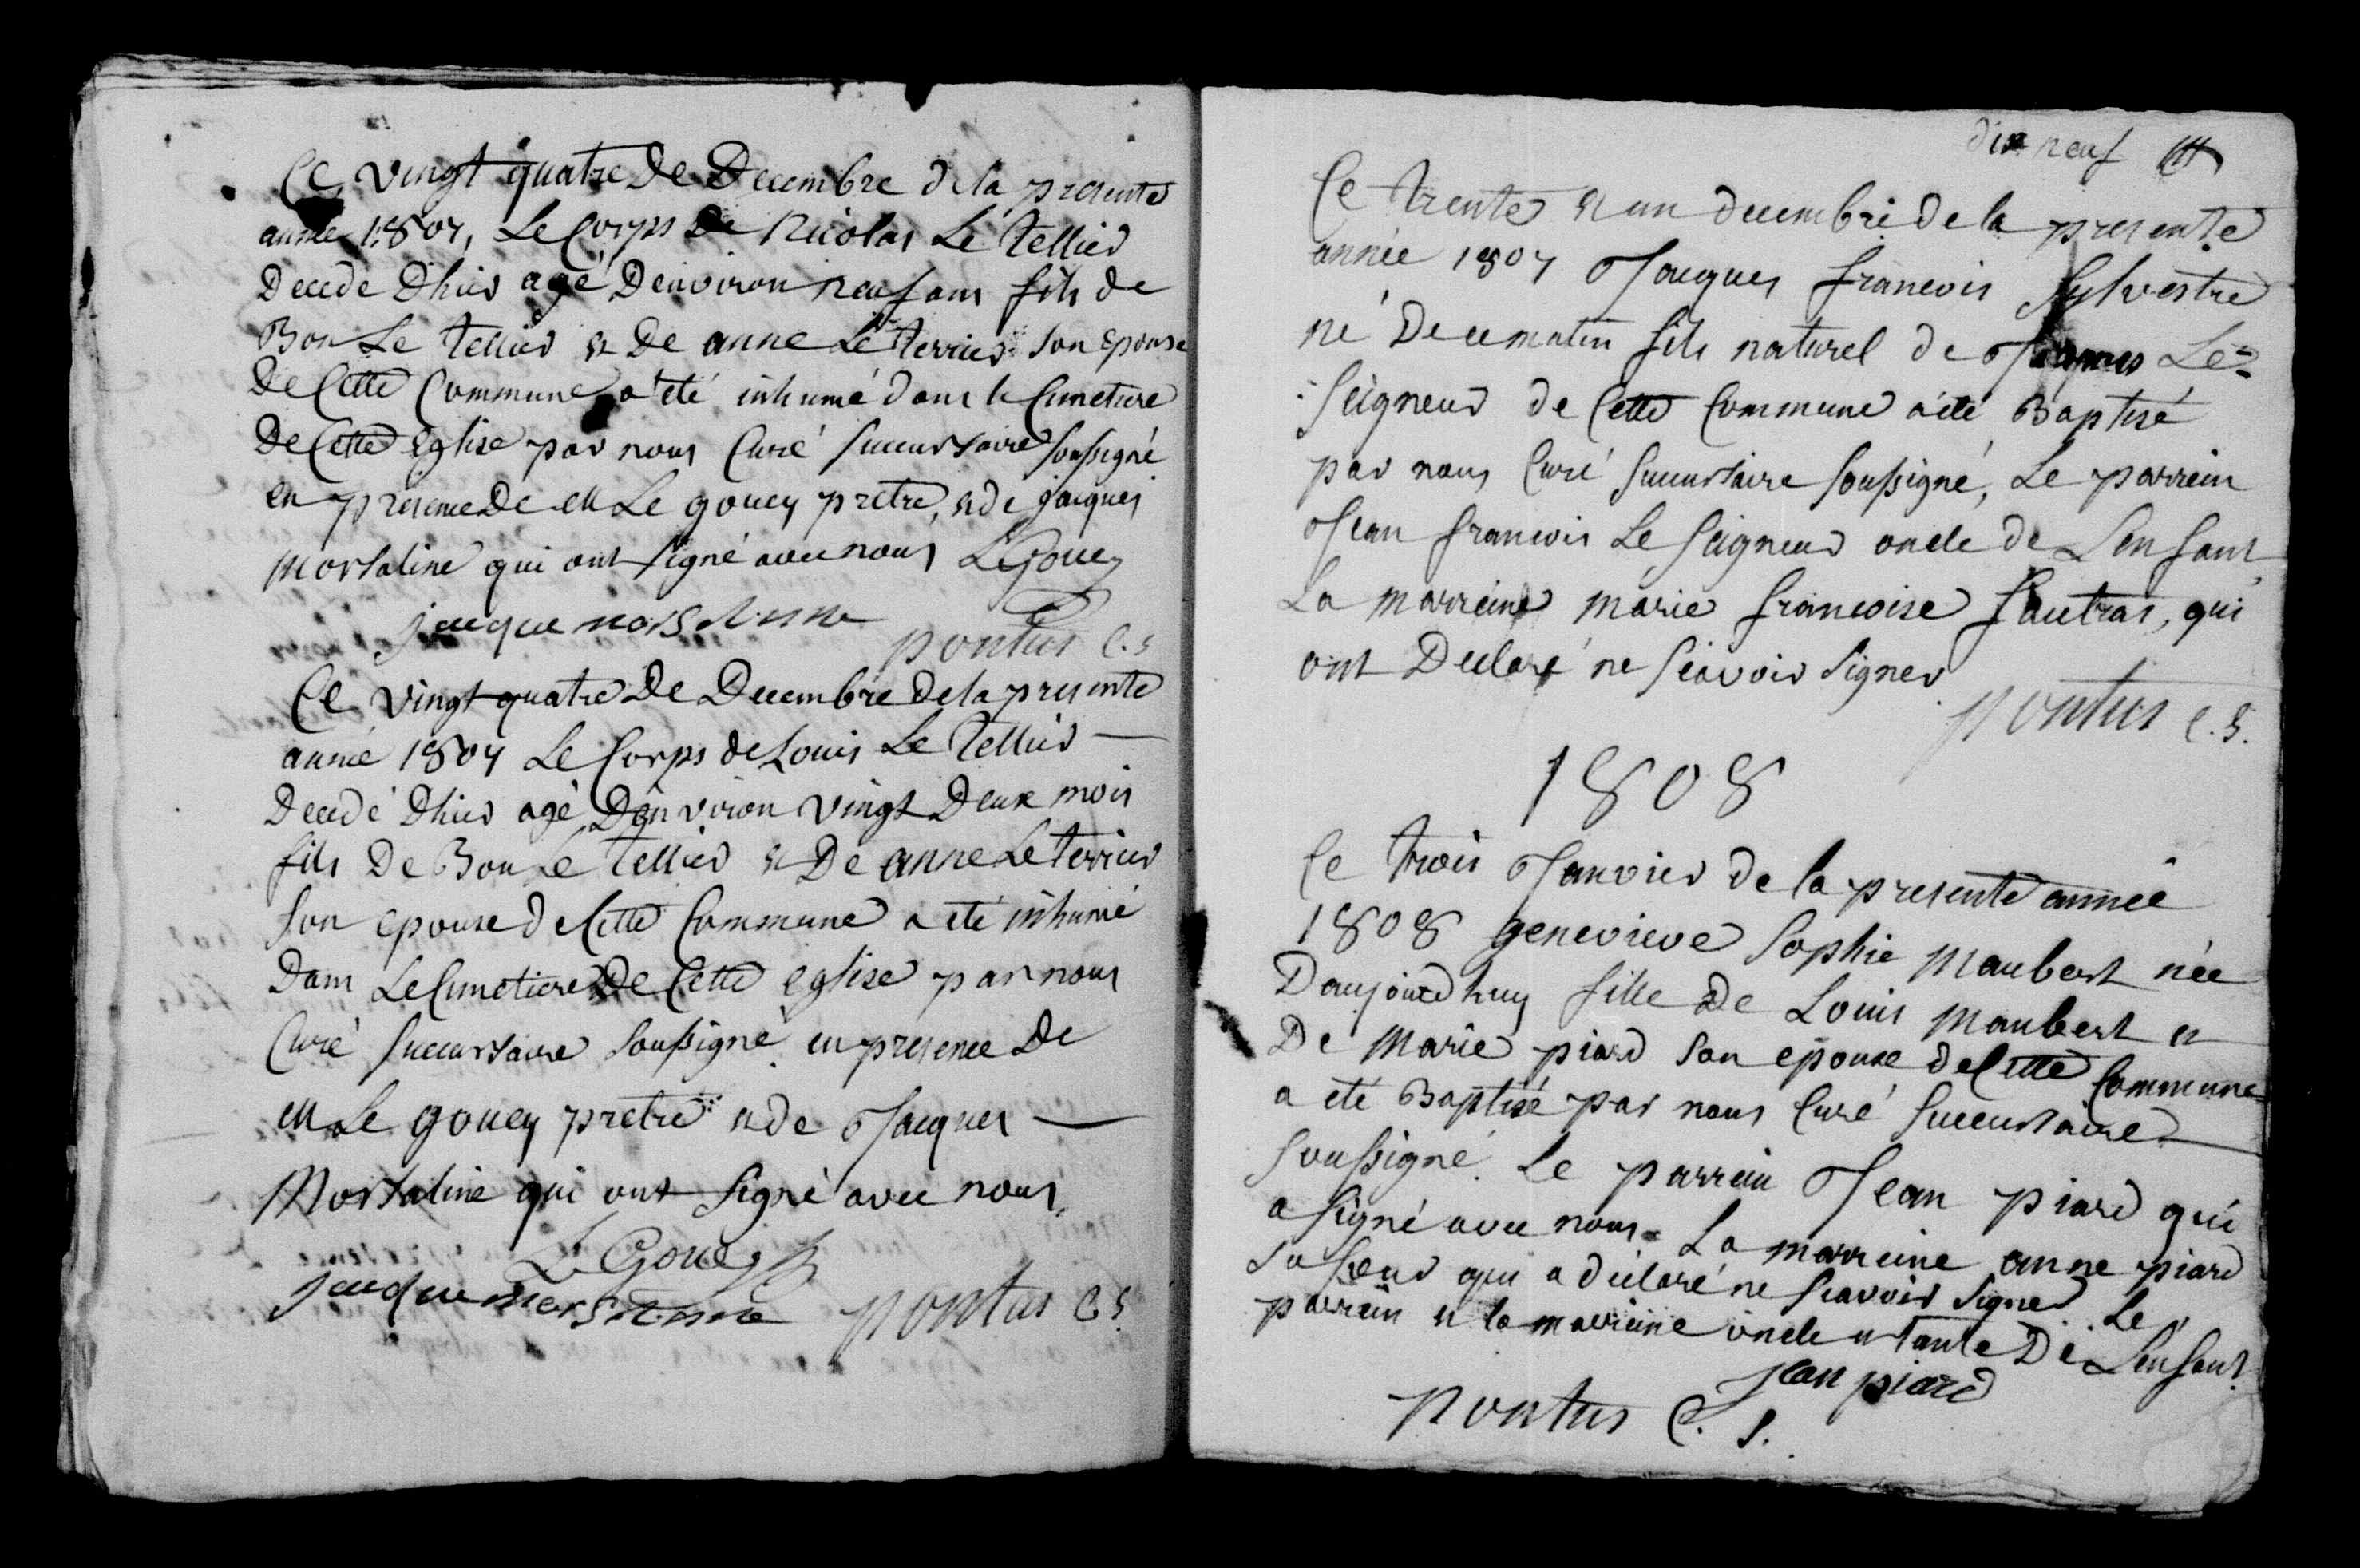 Ce vingt quatre De Decembre dela presente
année 1807, Le Corps De Nicolas Le Tellier
Decedé Dhier agé Denviron neuf ans fils de
Bon Le Tellier & De anne Le terrier son epouse
De Cette Commune a été inhumé dans le Cimetiere
De Cette eglise par nous Curé succursaire soussigné
en presence De M Le gouey pretre, & de jacques
Morsaline qui ont signé avec nous LeGouey
jacque morsalinne pontus C.S
Ce vingt quatre De Decembre Dela presente
année 1807 Le Corps de Louis Le Tellier
Decedé Dhier agé Denviron vingt Deux mois
fils De Bon Le Tellier & De anne Le terrier
son epouse de Cette Commune a été inhumé
Dans Le Cimetiere De Cette eglise par nous
Curé succursaire soussigné en presence De
M Le gouey pretre & de Jacques
Morsaline qui ont signé avec nous,
LeGouey
jacque morsalinne pontus C.S.
dix neuf
Ce trente & un decembre de la presente
année 1807 Jacques francois Sylvestre
né De ce matin fils naturel de Le
Seigneur de Cette Commune a été Baptisé
par nous Curé succursaire soussigné, Le parrein
Jean francois Le Seigneur oncle de Lenfant
La marreine marie francoise fautras, qui
ont Declaré ne scavoir signer
pontus C.S.
1808
Ce trois Janvier de la presente année
1808 genevieve Sophie Maubert née
Daujourdhuy fille De Louis Maubert &
De Marie piard son epouse de Cette Commune
a été Baptisé par nous Curé succursaire
soussigné. Le parrein Jean piard qui
a signé avec nous. La marreine anne piard
sa soeur qui a déclaré ne scavoir signer. Le
parrein & la marreine oncle & tante De Lenfant.
jean piard
pontus C. S.